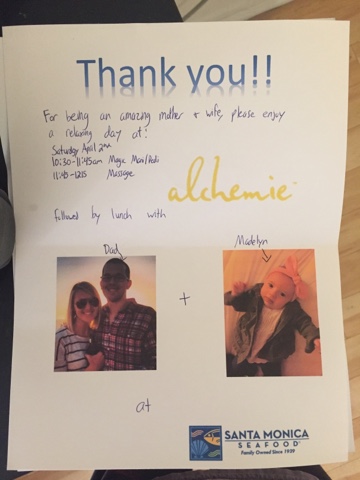 Thank you!!
For being an amazing mother + wife, please enjoy
a relaxing day at:
Saturday April 2nd
10:30-11:45am Magic Mani/Pedi
11:45-1215 Massage
alchemie
followed by lunch with
Dad
Madelyn
+
at
SANTA MONICA
SEAFOOD
Family Owned Since 1939